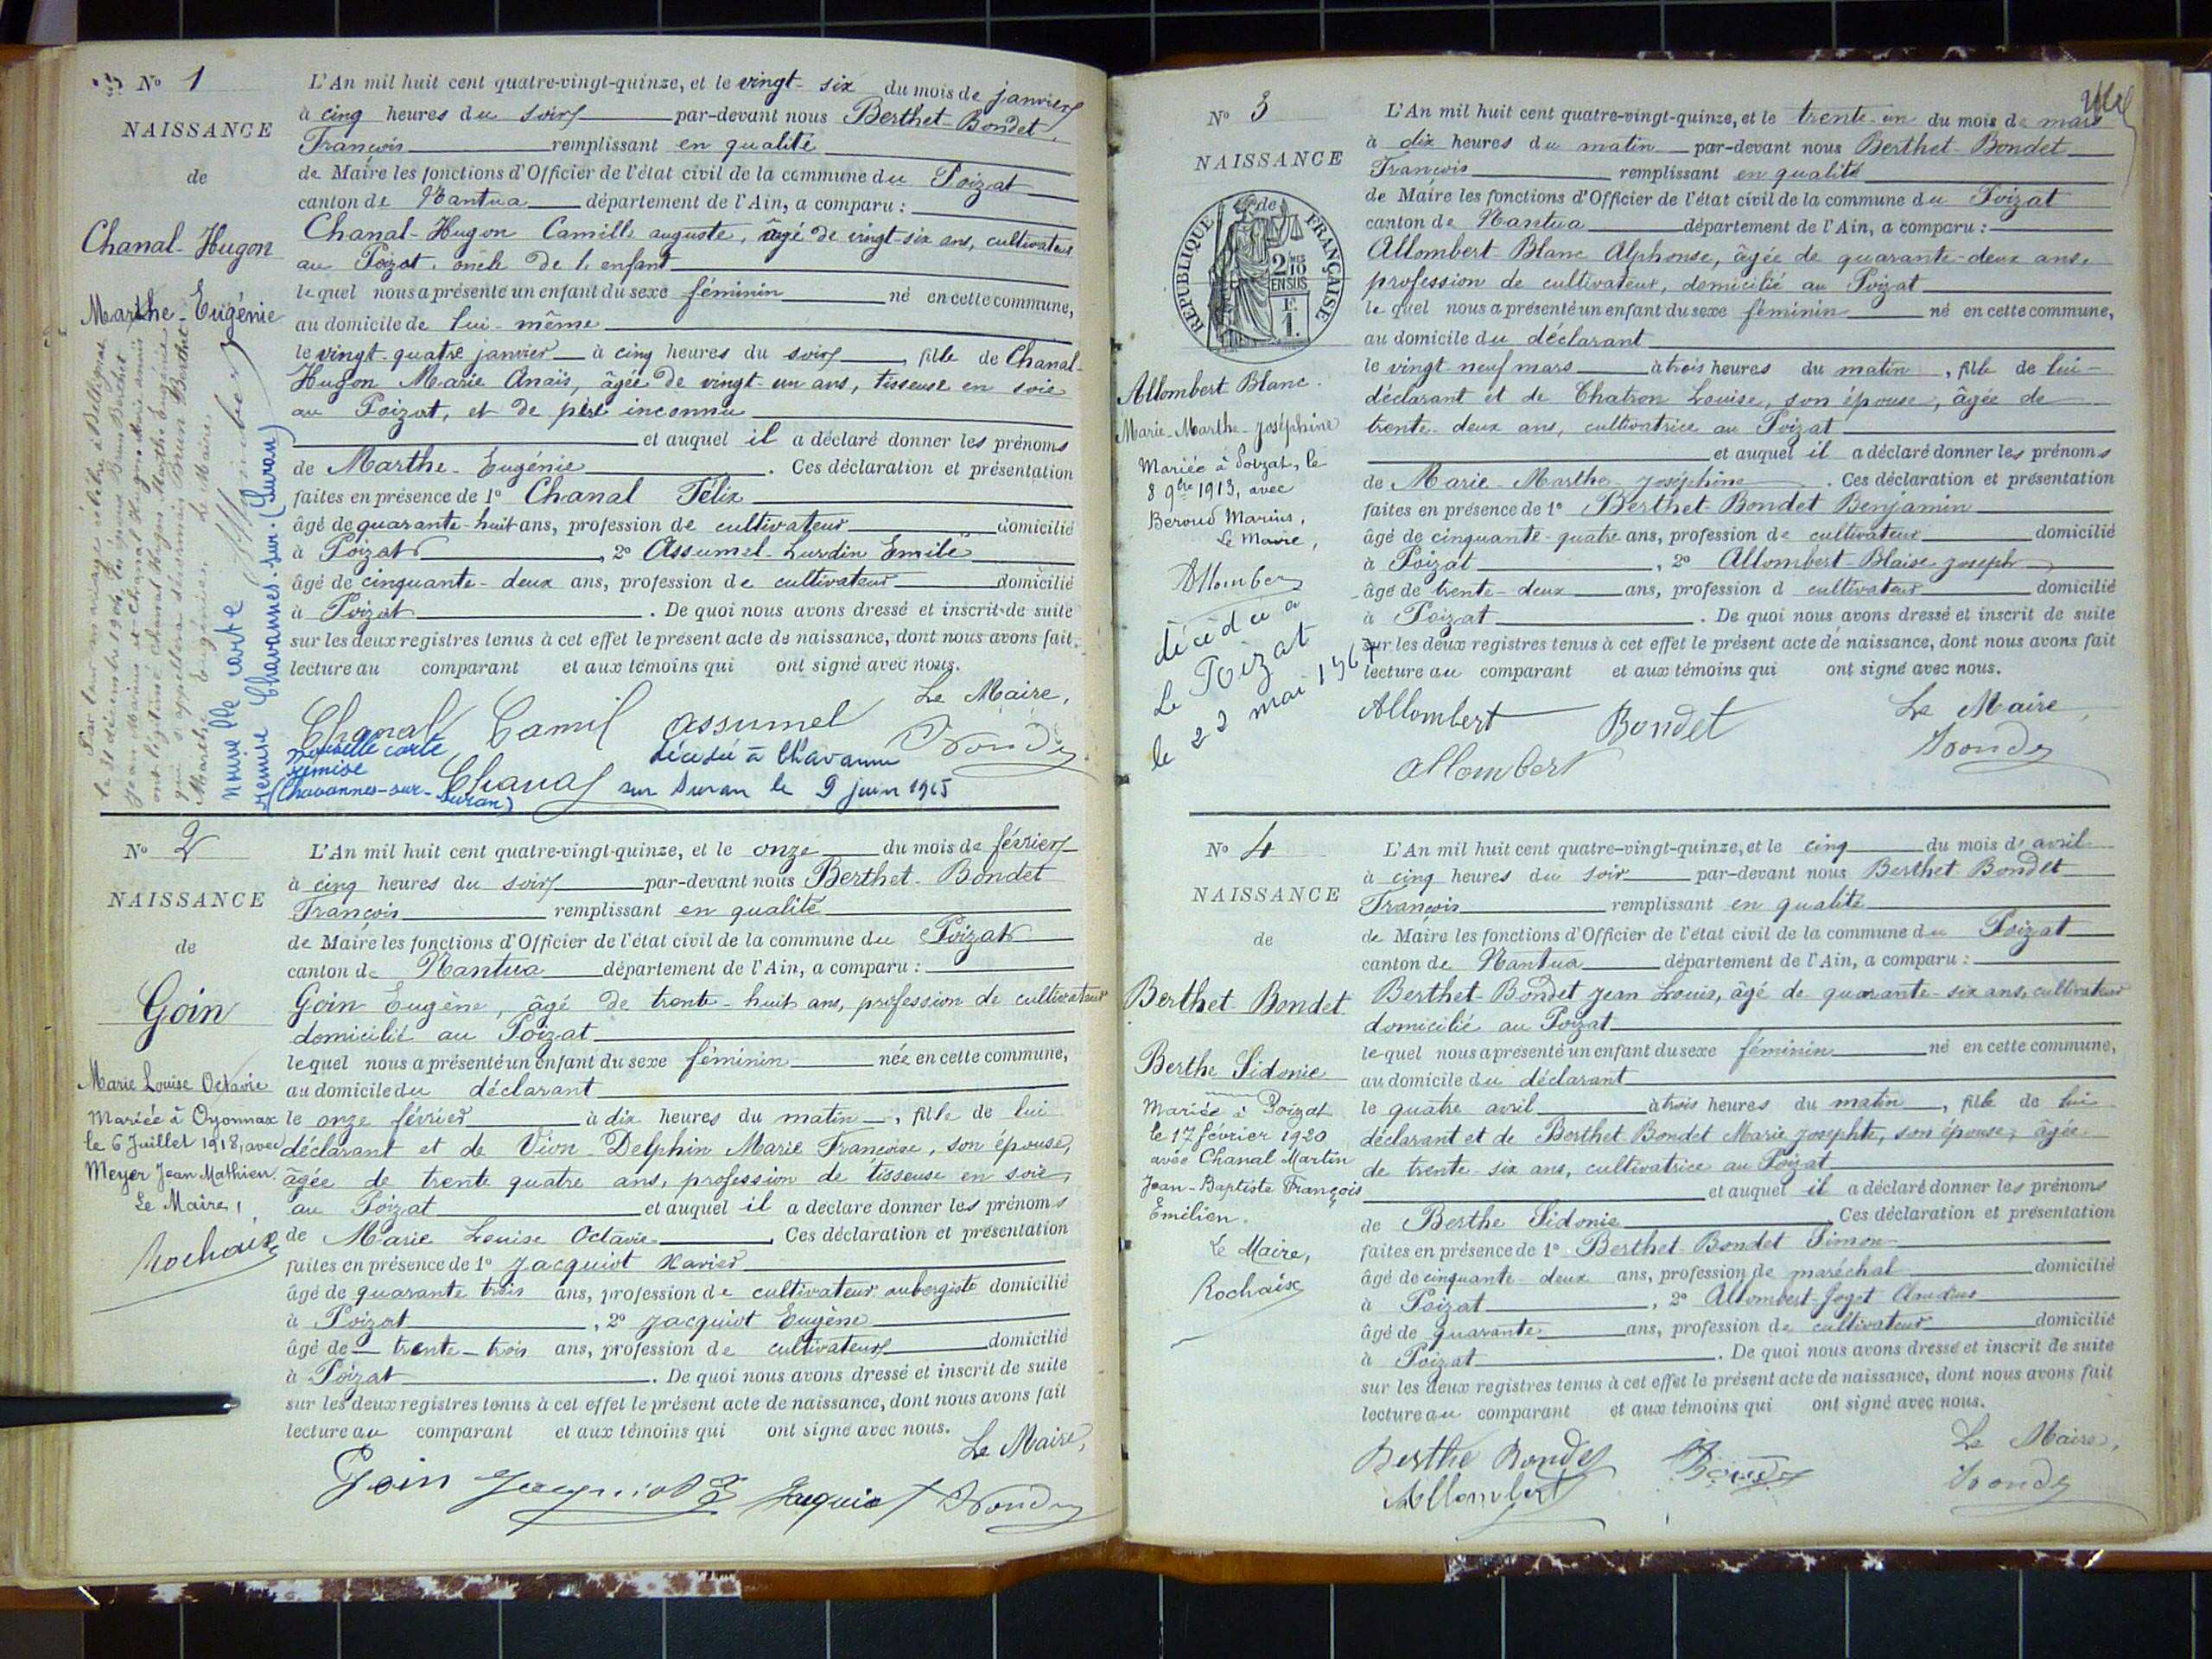 No 1
NAISSANCE
de
Chanal-Hugon
Marthe-Eugénie
Par leur mariage célébré à Béligneux
le 31 décembre 1904, les époux Brun Berthet
Jean Marius et Chanal Hugon Marie anaïs
ont légitimé Chanal Hugon Marthe Eugénie
qui s'appellera désormais Brun Berthet
Marthe Eugénie. Le Maire,
nouvelle carte
remise Chavannes-sur-(Suran)
L'An mil huit cent quatre-vingt-quinze, et le vingt-six du mois de janvier
à cinq heures du soir par-devant nous Berthet-Bondet
François remplissant en qualité
de Maire les fonctions d'Officier de l'état civil de la commune du Poizat
canton de Nantua département de l'Ain, a comparu :
Chanal-Hugon Camille auguste, âgé de vingt-six ans, cultivateur
au Poizat, oncle de l'enfant
lequel nous a présenté un enfant du sexe féminin né en cette commune,
au domicile de lui-même
le vingt-quatre janvier à cinq heures du soir, fille de Chanal-
Hugon Marie Anaïs, âgée de vingt-un ans, tisseuse en soie
au Poizat, et de père inconnu
et auquel il a déclaré donner les prénoms
de Marthe-Eugénie. Ces déclaration et présentation
faites en présence de 1o Chanal Félix
âgé de quarante-huit ans, profession de cultivateur domicilié
à Poizat, 2o Assumel-Lurdin Emile
âgé de cinquante-deux ans, profession de cultivateur domicilié
à Poizat. De quoi nous avons dressé et inscrit de suite
sur les deux registres tenus à cet effet le présent acte de naissance, dont nous avons fait
lecture au comparant et aux témoins qui ont signé avec nous.
Le Maire,
Chanal Camil assumel
nouvelle carte
remise
(Chavannes-sur-Suran)
Chanal
décédée à Chavannes
sur Suran le 9 juin 1965
No 2
NAISSANCE
de
Goin
Marie Louise Octavie
Mariée à Oyonnax
le 6 Juillet 1918, avec
Meyer Jean Mathieu.
Le Maire,
Rochaix
L'An mil huit cent quatre-vingt-quinze, et le onze du mois de février
à cinq heures du soir par-devant nous Berthet-Bondet
François remplissant en qualité
de Maire les fonctions d'Officier de l'état civil de la commune du Poizat
canton de Nantua département de l'Ain, a comparu :
Goin Eugène, âgé de trente-huit ans, profession de cultivateur
domicilié au Poizat
lequel nous a présenté un enfant du sexe féminin née en cette commune,
au domicile du déclarant
le onze février à dix heures du matin, fille de lui
déclarant et de Vion-Delphin Marie Françoise, son épouse,
âgée de trente quatre ans, profession de tisseuse en soie,
au Poizat et auquel il a déclaré donner les prénoms
de Marie Louise Octavie. Ces déclaration et présentation
faites en présence de 1o Jacquiot Xavier
âgé de quarante trois ans, profession de cultivateur aubergiste domicilié
à Poizat, 2o Jacquiot Eugène
âgé de trente-trois ans, profession de cultivateur domicilié
à Poizat. De quoi nous avons dressé et inscrit de suite
sur les deux registres tenus à cet effet le présent acte de naissance, dont nous avons fait
lecture au comparant et aux témoins qui ont signé avec nous.
Le Maire,
Goin Jacquiot E Jacquiot
No 3
NAISSANCE
de
RÉPUBLIQUE FRANÇAISE
2/10 EN SUS
F. 1.
Allombert Blanc.
Marie-Marthe-Joséphine
Mariée à Poizat, le
8 9bre 1913, avec
Beroud Marius,
Le Maire,
Allomber
décédée a
Le Poizat
le 22 mai 1967
L'An mil huit cent quatre-vingt-quinze, et le trente-un du mois de mars
à dix heures du matin par-devant nous Berthet-Bondet
François remplissant en qualité
de Maire les fonctions d'Officier de l'état civil de la commune du Poizat
canton de Nantua département de l'Ain, a comparu :
Allombert-Blanc Alphonse, âgée de quarante-deux ans,
profession de cultivateur, domicilié au Poizat
lequel nous a présenté un enfant du sexe féminin né en cette commune,
au domicile du déclarant
le vingt-neuf mars à trois heures du matin, fille de lui-
déclarant et de Chatron Louise, son épouse, âgée de
trente-deux ans, cultivatrice au Poizat
et auquel il a déclaré donner les prénoms
de Marie-Marthe-Joséphine. Ces déclaration et présentation
faites en présence de 1o Berthet-Bondet Benjamin
âgé de cinquante-quatre ans, profession de cultivateur domicilié
à Poizat, 2o Allombert-Blaise Joseph
âgé de trente-deux ans, profession d cultivateur domicilié
à Poizat. De quoi nous avons dressé et inscrit de suite
sur les deux registres tenus à cet effet le présent acte de naissance, dont nous avons fait
lecture au comparant et aux témoins qui ont signé avec nous.
Allombert Bondet Le Maire,
allombert
No 4
NAISSANCE
de
Berthet-Bondet
Berthe Sidonie
Mariée à Poizat
le 17 février 1920
avec Chanal Martin
Jean-Baptiste François
Emilien.
Le Maire,
Rochaix
L'An mil huit cent quatre-vingt-quinze, et le cinq du mois d'avril
à cinq heures du soir par-devant nous Berthet-Bondet
François remplissant en qualité
de Maire les fonctions d'Officier de l'état civil de la commune du Poizat
canton de Nantua département de l'Ain, a comparu :
Berthet-Bondet Jean Louis, âgé de quarante-six ans, cultivateur
domicilié au Poizat
lequel nous a présenté un enfant du sexe féminin né en cette commune,
au domicile du déclarant
le quatre avril à trois heures du matin, fille de lui
déclarant et de Berthet-Bondet Marie Josephte, son épouse, âgée
de trente-six ans, cultivatrice au Poizat
et auquel il a déclaré donner les prénoms
de Berthe Sidonie Ces déclaration et présentation
faites en présence de 1o Berthet-Bondet Simon
âgé de cinquante-deux ans, profession de maréchal domicilié
à Poizat, 2o Allombert-Goget Claudius
âgé de quarante ans, profession de cultivateur domicilié
à Poizat. De quoi nous avons dressé et inscrit de suite
sur les deux registres tenus à cet effet le présent acte de naissance, dont nous avons fait
lecture au comparant et aux témoins qui ont signé avec nous.
Le Maire,
Berthe Bondet
Allombert